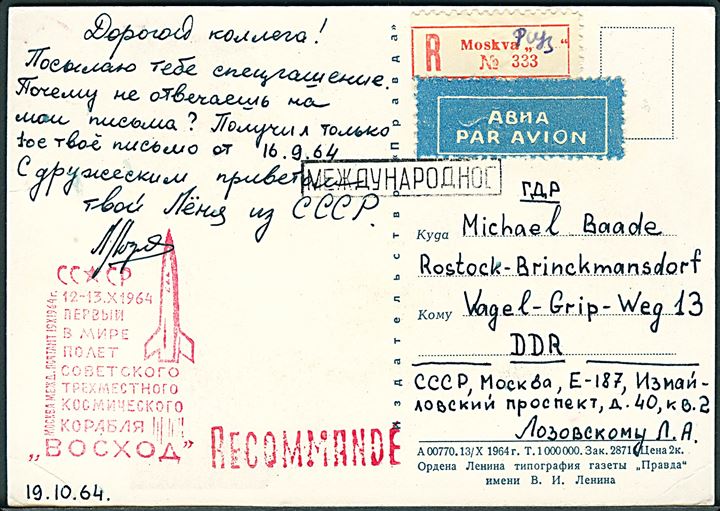 Дорогой коллега!
Посылаю тебе спецгашение.
Почему не отвечаешь на
мои письма? Получил только
твоё письмо от 16.9.64
С дружеским приветом
твой Лёня из СССР.
СССР
12-13.X1964
ПЕРВЫЙ
В МИРЕ
ПОЛЕТ
СОВЕТСКОГО
ТРЕХМЕСТНОГО
КОСМИЧЕСКОГО
КОРАБЛЯ
„ВОСХОД"
МОСКВА МЕЖД. ПОЧТАМТ 19X1964г.
19.10.64.
RECOMMANDE
издательство «Правда»
R Moskva „ "
№ 333
АВИА
PAR AVION
МЕЖДУНАРОДНОЕ
ГДР
Куда Michael Baade
Rostock-Brinckmansdorf
Кому Vagel-Grip-Weg 13
DDR
СССР, Москва, Е-187, Измай-
ловский проспект, д. 40, кв. 2
Лозовскому Л.А.
А 00770. 13/X 1964 г. Т. 1 000 000. Зак. 2871 Цена 2к.
Ордена Ленина типография газеты „Правда"
имени В. И. Ленина